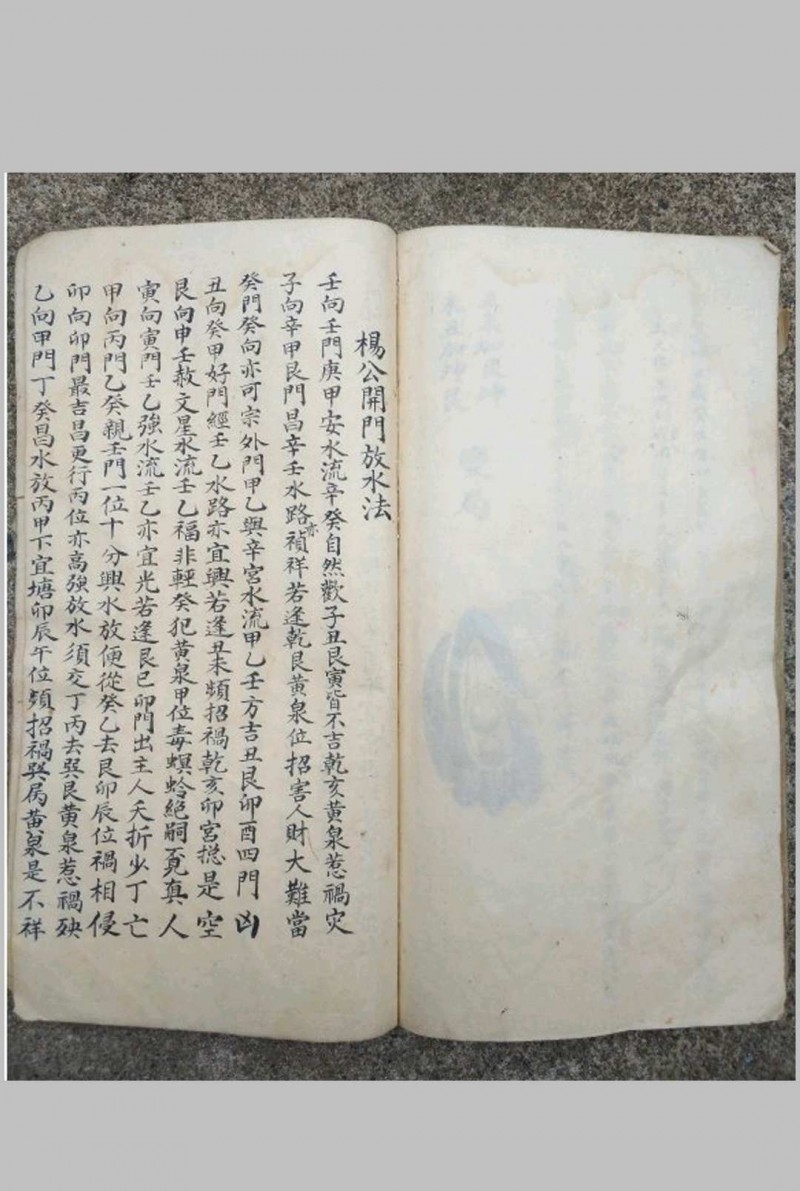 楊公開門放水法
壬向壬門庚甲安水流辛癸自然歡子丑艮寅皆不吉乾亥黃泉惹禍灾
子向辛甲艮門昌辛壬水路亦禎祥若逢乾艮黃泉位招害人財大難當
癸門癸向亦可宗外門甲乙與辛宮水流甲乙壬方吉丑艮卯酉四門凶
丑向癸甲好門經壬乙水路亦宜興若逢丑未頻招禍乾亥卯宮摠是空
艮向申壬赦文星水流壬乙福非輕癸犯黃泉甲位毒螟蛉絕嗣覔真人
寅向寅門壬乙強水流壬乙亦宜光若逢艮巳卯門出主人夭折少丁亡
甲向丙門乙癸親壬門一位十分興水放便從癸乙去艮卯辰位禍相侵
卯向卯門最吉昌更行丙位亦高強放水須交丁丙去巽艮黃泉惹禍殃
乙向甲門丁癸昌水放丙甲下宜塘卯辰午位頻招禍巽為黃泉是不祥